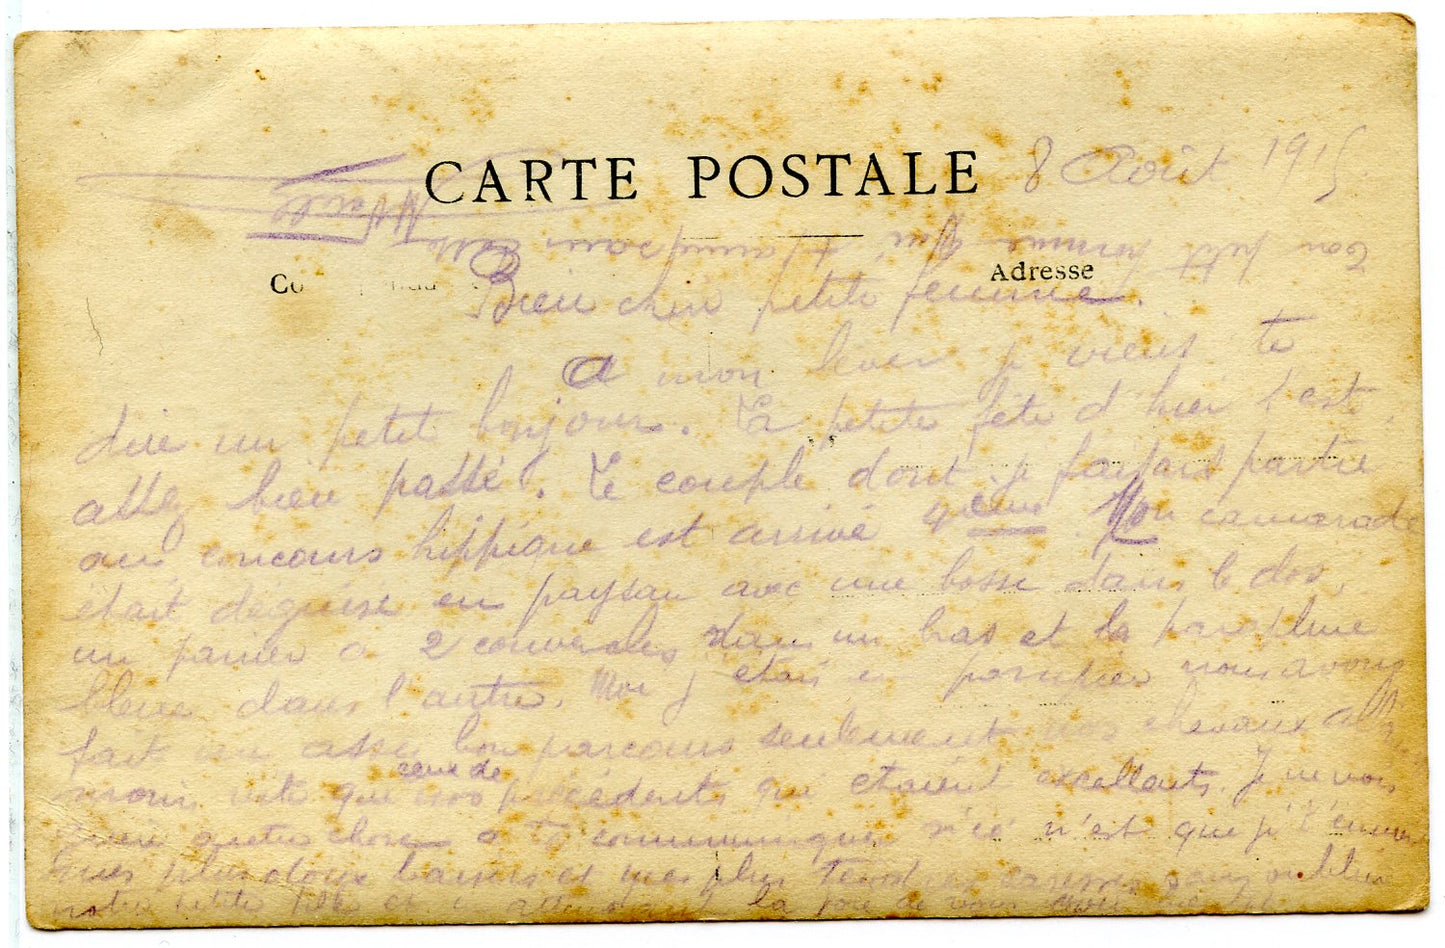 CARTE POSTALE
8 Août 1915
Adresse
Bien cher petite femme.
A mon lever je viens te
dire un petit bonjour. La petite fête d'hier s'est
assez bien passée. Le couple dont je faisais partie
au concours hippique est arrivé 9eme. Mon camarade
était déguisé en paysan avec une bosse dans le dos,
un panier a 2 couvercles dans un bras et la parapluie
bleue dans l'autre. Moi j'étais en pompier nous avons
fait un assez bon parcours seulement nos chevaux
moins vite que ceux de nos précédents qui étaient excellents. Je ne vois
guère autre chose a te communiquer si ce n'est que je t'envoie
mes plus doux baisers et mes plus tendres caresses sans oublier
notre petite fille et en attendant la joie de vous
Ton petit homme qui t'aime